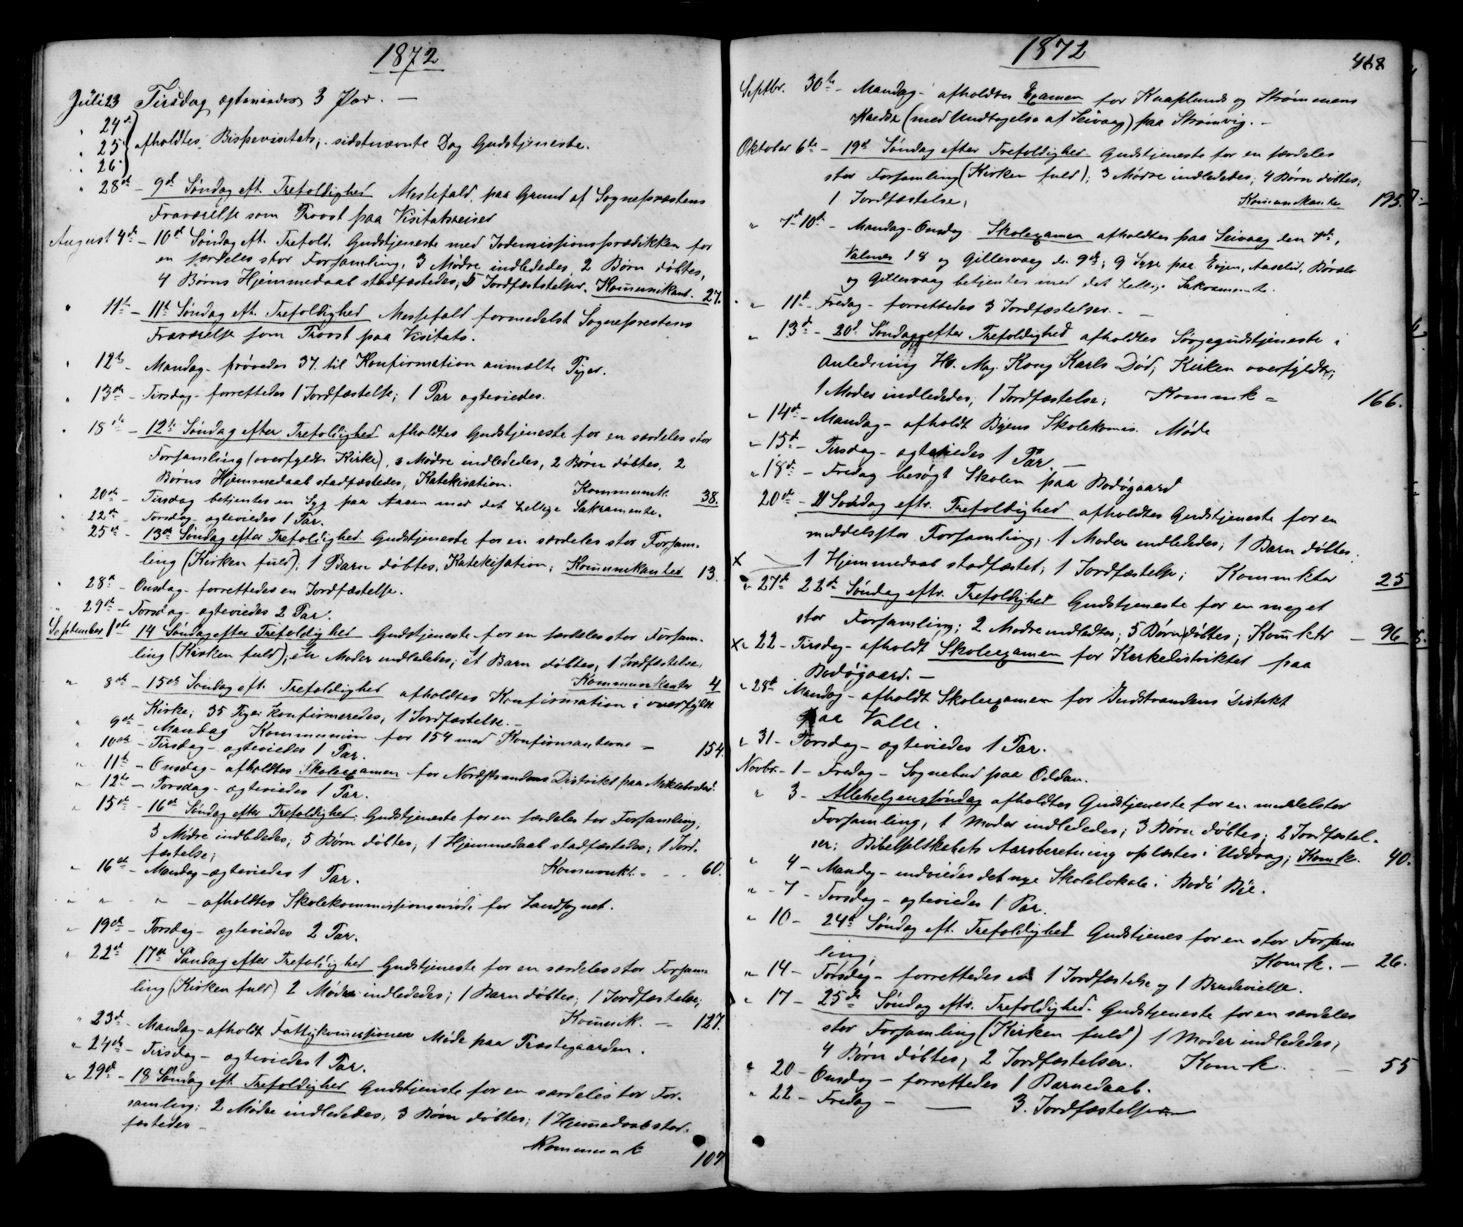 1872
Juli 23 Tirsdag egteviedes 3 Par. —
" 24de
" 25 afholdtes Bispevisitats, sidstnævnte Dag Gudstjeneste.
" 26
" 28de — 9de Søndag eft. Trefoldighed Messefald, paa Grund af Sognepræstens
Fraværelse som Provst paa Visitatsreiser
August 4de — 10de Søndag eft. Trefold. Gudstjeneste med Indremissionsprædikken for
en særdeles stor Forsamling, 3 Mødre indlededes, 2 Børn døbtes,
4 Børns Hjemmedaab stadfæstedes; 5 Jordfæstelser. Kommunikant. 27.
" 11te — 11te Søndag eft. Trefoldighed Messefald formedelst Sogneprestens
Fraværelse som Provst paa Visitats.
" 12te Mandag — prøvedes 37 til Konfirmation anmeldte Piger.
" 13de — Tirsdag — forrettedes 1 Jordfæstelse; 1 Par egteviedes.
" 18de — 12te Søndag efter Trefoldighed afholdtes Gudstjeneste for en særdeles stor
Forsamling (overfyldt Kirke), 3 Mødre indlededes, 2 Børn døbtes, 2
Børns Hjemmedaab stadfæstedes, Katekisation. Kommunik. 38.
" 20de — Tirsdag betjentes en Syg paa med det hellige Sakramente.
" 22de — Torsdag egteviedes 1 Par.
" 25de — 13de Søndag efter Trefoldighed Gudstjeneste for en særdeles stor Forsam-
ling (Kirken fuld), 1 Barn døbtes, Katekisation; Kommunikanter 13.
" 28de — Onsdag — forrettedes en Jordfæstelse.
" 29de — Torsdag — egteviedes 2 Par.
September 1ste 14 Søndag efter Trefoldighed Gudstjeneste for en særdeles stor Forsam-
ling (Kirken fuld); en Moder indlededes; et Barn døbtes; 1 Jordfæstelse;
Kommunikanter 4
" 8de — 15de Søndag eft. Trefoldighed afholdtes Konfirmation i overfyldt
Kirke; 35 Piger konfirmeredes; 1 Jordfæstelse. —
" 9de — Mandag Kommunion for 154 med Konfirmanterne — 154
" 10de — Tirsdag — egteviedes 1 Par.
" 11te — Onsdag — afholdtes Skoleexamen for Nordstrandens Distrikt paa
" 12te — Torsdag — egteviedes 1 Par.
" 15de — 16de Søndag efter Trefoldighed. Gudstjeneste for en særdeles stor Forsamling,
3 Mødre indlededes; 5 Børn døbtes; 1 Hjemmedaab stadfæstedes; 1 Jord-
fæstelse;
" 16de — Mandag — egteviedes 1 Par. Kommunikt. — 60.
" " " — afholdtes Skolekommissionsmøde for Landsognet.
" 19de — Torsdag — egteviedes 2 Par.
" 22de 17de Søndag efter Trefoldighed Gudstjeneste for en særdeles stor Forsam-
ling (Kirken fuld) 2 Mødre indlededes; 1 Barn døbtes; 1 Jordfæstelse;
Kommunik. — 127.
" 23de — Mandag — afholdt Fattigkommissionen Møde paa Præstegaarden.
" 24de — Tirsdag — egteviedes 1 Par.
" 29de — 18 Søndag eft. Trefoldighed Gudstjeneste for en særdeles stor For-
samling; 2 Mødre indlededes, 3 Børn døbtes; 1 Hjemmedaab stad-
fæstedes —
Kommunik 107
1872
468
Septbr. 30te — Mandag — afholdtes Examen for Knaplunds og Strømmens
Kredse (med Undtagelse af Seivaag) paa Strømvig. —
Oktober 6te — 19de Søndag efter Trefoldighed Gudstjeneste for en særdeles
stor Forsamling (Kirken fuld); 3 Mødre indlededes; 4 Børn døbtes;
1 Jordfæstelse; Kommunikanter 195.
" 7de-10de — Mandag-Onsdag Skoleexamen afholdtes paa Seivaag den 7de,
Valnes d 8 og Gillesvaag d. 9de; 9 Syge paa
og Gillesvaag betjentes med det hellige Sakramente.
" 11te — Fredag — forrettedes 3 Jordfæstelser. —
" 13de — 20de Søndag efter Trefoldighed afholdtes Sørgegudstjeneste i
Anledning Hs. Maj. Kong Karls Død; Kirken overfyldt;
1 Moder indlededes; 1 Jordfæstelse; Kommunik — 166.
" 14de — Mandag — afholdt Byens Skolekomis. Møde
" 15de — Tirsdag — egteviedes 1 Par. —
" 18de — Fredag besøgt Skolen paa Bodøgaard
20de — 21 Søndag eftr. Trefoldighed afholdtes Gudstjeneste for en
middelsstor Forsamling; 1 Moder indlededes; 1 Barn døbtes.
x 1 Hjemmedaab stadfæstet; 1 Jordfæstelse; Kommunkter 25
" 27de 22de Søndag eftr. Trefoldighed Gudstjeneste for en meget
stor Forsamling; 2 Mødre indledtes; 5 Børn døbtes; Komktr — 96
x 22 — Tirsdag — afholdt Skoleexamen for Kirkedistriktet paa
Bodøgaard. —
" 28de Mandag — afholdt Skoleexamen for Indstrandens Distrikt
paa Valle.
" 31 — Torsdag — egteviedes 1 Par.
Novbr. — 1 — Fredag — Sognebud paa Oddan.
" 3 — Allehelgenssøndag afholdtes Gudstjeneste for en middelstor
Forsamling, 1 Moder indlededes; 3 Børn døbtes; 2 Jordfæstel-
ser; Bibelselskabets Aarsberetning oplæstes i Uddrag; Komk. 40.
" 4 — Mandag — indviedes det nye Skolelokale i Bodø Bye.
" 7 — Torsdag — egteviedes 1 Par.
" 10 — 24de Søndag eft. Trefoldighed Gudstjenes for en stor Forsam
ling; Komk. — 26.
" 14 — Torsdag — forrettedes 1 Jordfæstelse og 1 Brudevielse.
" 17 — 25de Søndag eftr. Trefoldighed. Gudstjeneste for en særdeles
stor Forsamling (Kirken fuld) 1 Moder indlededes;
4 Børn døbtes; 2 Jordfæstelser. Komk. — 55
" 20 — Onsdag — forrettedes 1 Barnedaab.
" 22 — Fredag — — 3. Jordfæstelser